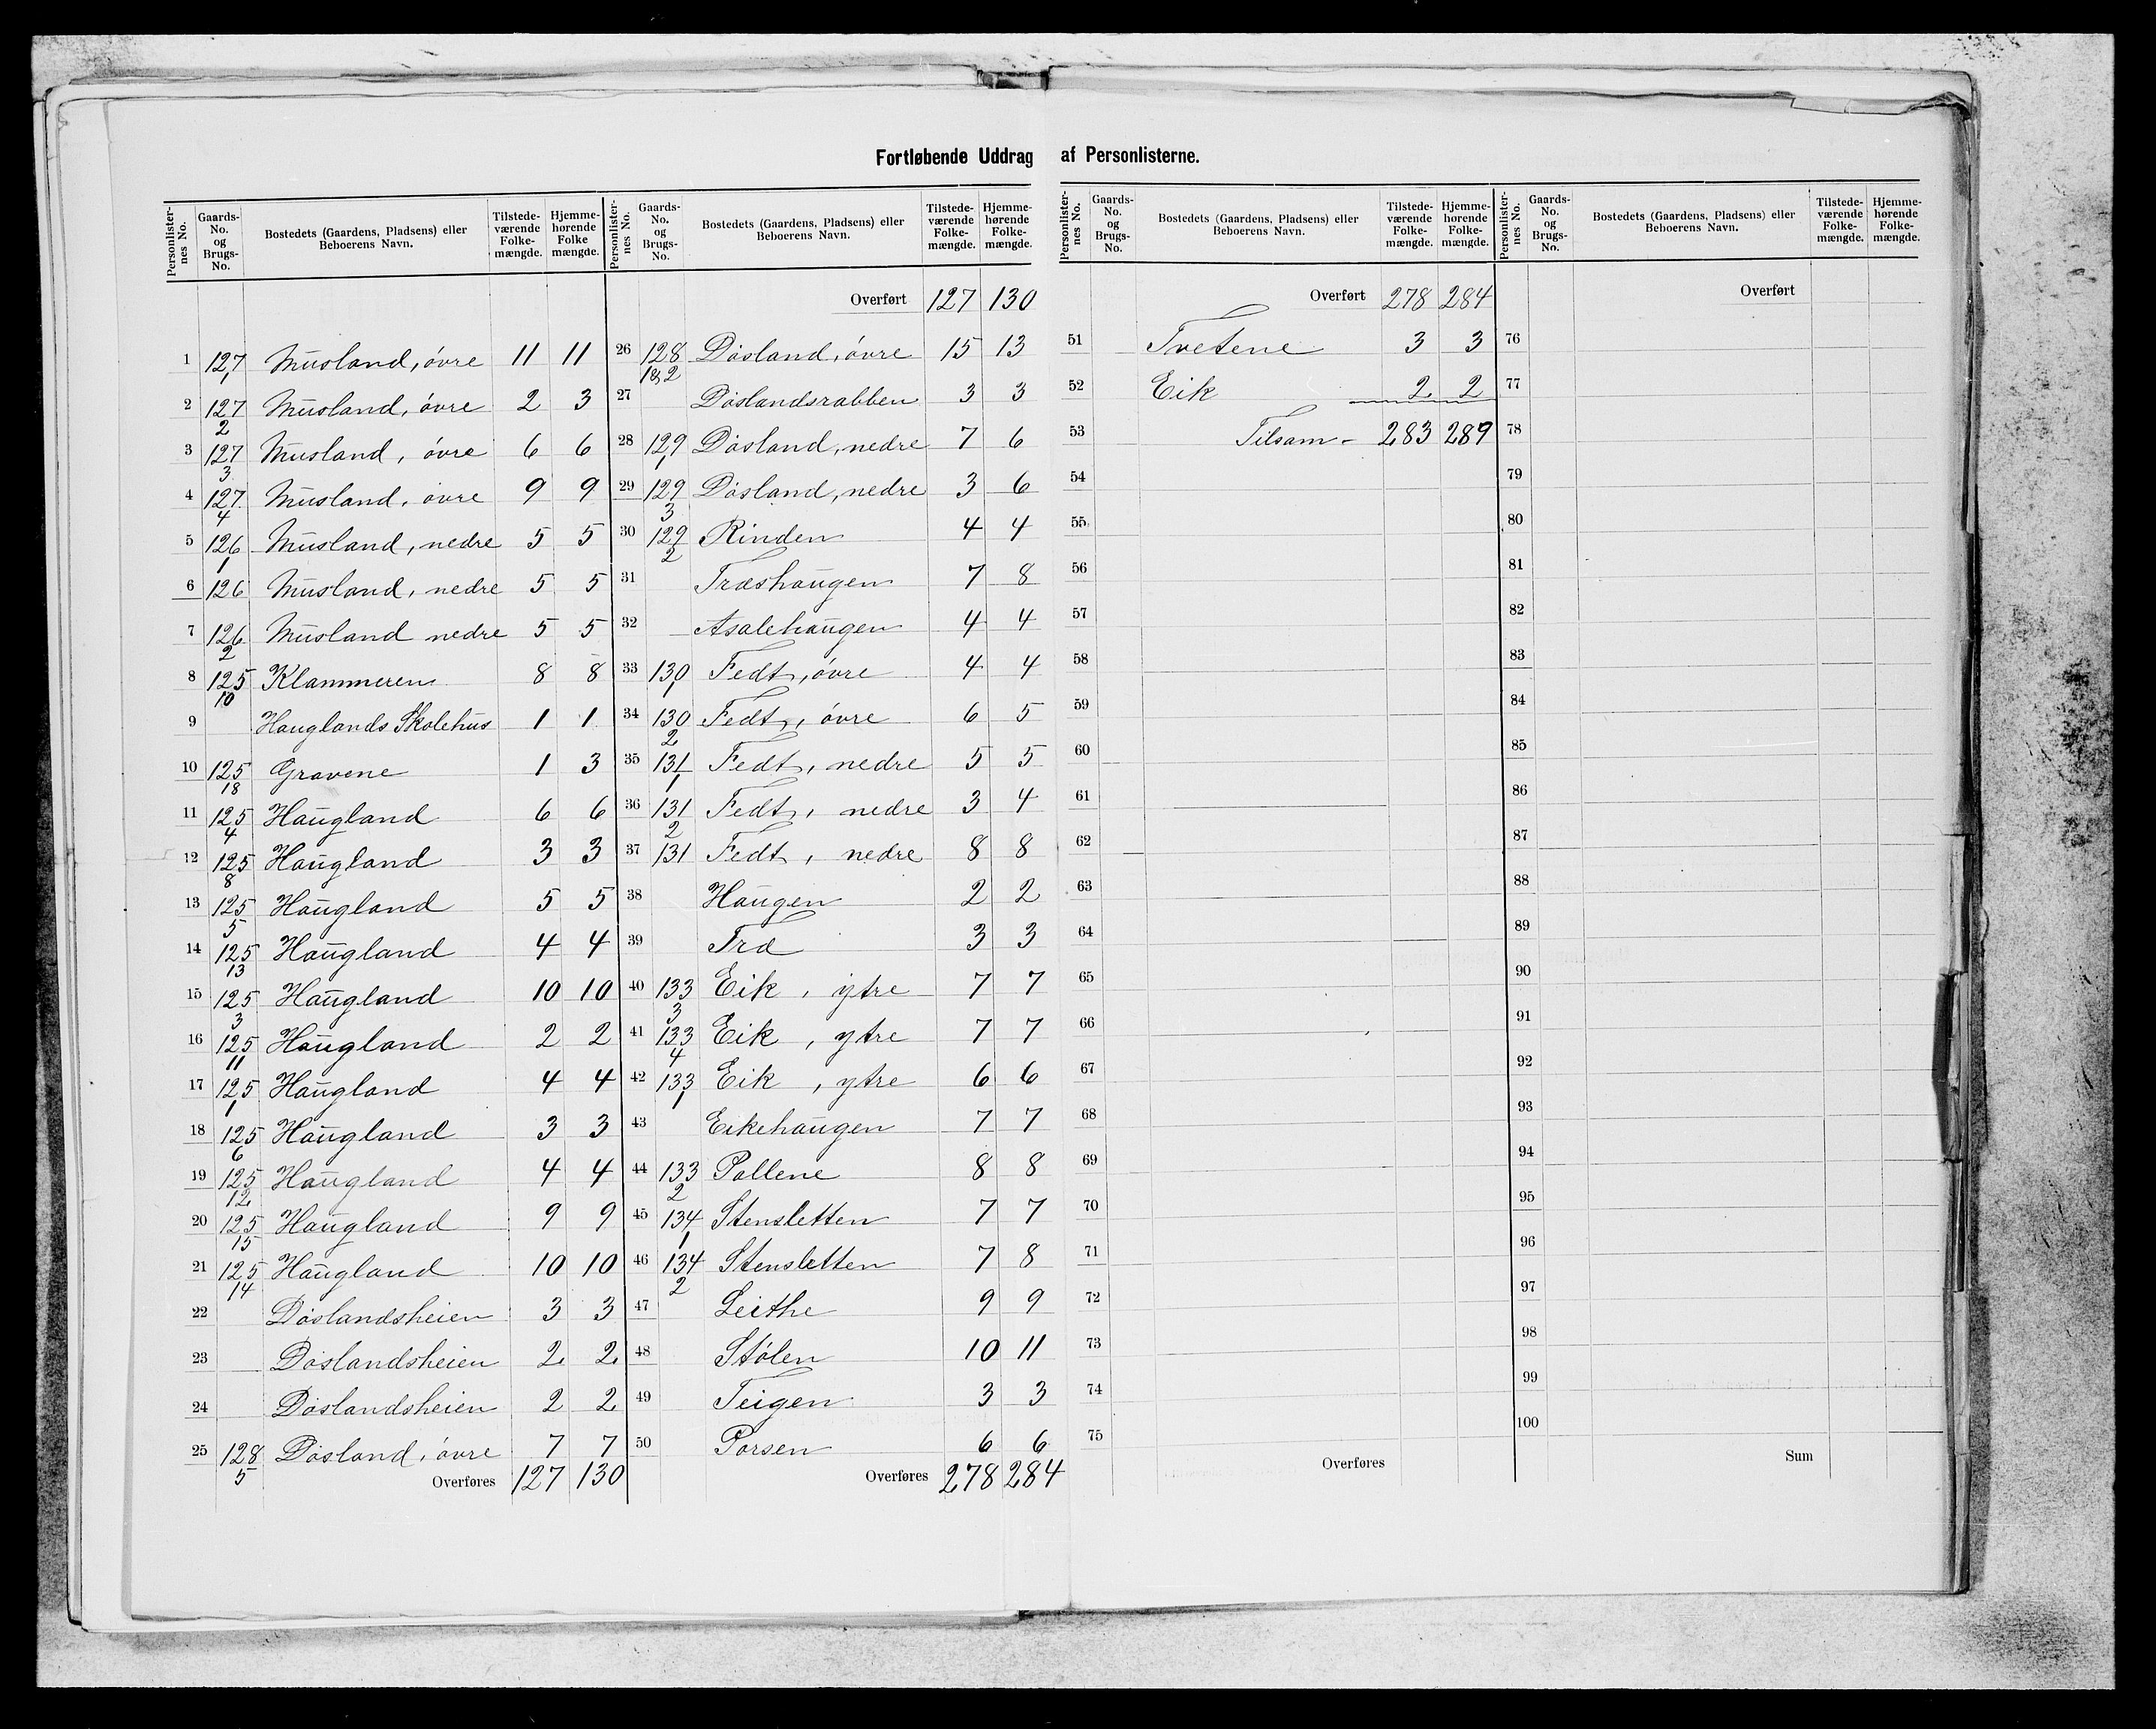 Fortløbende Uddrag af Personlisterne.
Personlister-nes No. Gaards-No. og Brugs-No. Bostedets (Gaardens, Pladsens) eller Beboerens Navn. Tilstede-værende Folke-mængde. Hjemme-hørende Folke mængde.
1 127/1 Musland, övre 11 11
2 127/2 Musland, övre 2 3
3 127/3 Musland, övre 6 6
4 127/4 Musland, övre 9 9
5 126/1 Musland, nedre 5 5
6 126 Musland, nedre 5 5
7 126/2 Musland nedre 5 5
8 125/10 Klammeren 8 8
9 Hauglands Skolehus 1 1
10 125/18 Gravene 1 3
11 125/4 Haugland 6 6
12 125/8 Haugland 3 3
13 125/5 Haugland 5 5
14 125/13 Haugland 4 4
15 125/3 Haugland 10 10
16 125/11 Haugland 2 2
17 125/1 Haugland 4 4
18 125/6 Haugland 3 3
19 125/12 Haugland 4 4
20 125/15 Haugland 9 9
21 125/14 Haugland 10 10
22 Döslandsheien 3 3
23 Döslandsheien 2 2
24 Döslandsheien 2 2
25 128/5 Dösland, övre 7 7
Overføres 127 130
Personlister-nes No. Gaards-No. og Brugs-No. Bostedets (Gaardens, Pladsens) eller Beboerens Navn. Tilstede-værende Folke-mængde. Hjemme-hørende Folke-mængde.
Overført 127 130
26 128/1&2 Dösland, övre 15 13
27 Döslandsrabben 3 3
28 129/1 Dösland, nedre 7 6
29 129/3 Dösland, nedre 3 6
30 129/2 Rinden 4 4
31 Træshaugen 7 8
32 Asalehaugen 4 4
33 130/1 Fedt, övre 4 4
34 130/2 Fedt, övre 6 5
35 131/1 Fedt, nedre 5 5
36 131/2 Fedt, nedre 3 4
37 131 Fedt, nedre 8 8
38 Haugen 2 2
39 Træ 3 3
40 133/3 Eik, ytre 7 7
41 133/4 Eik, ytre 7 7
42 133/1 Eik, ytre 6 6
43 Eikehaugen 7 7
44 133/2 Pollene 8 8
45 134/1 Stensletten 7 7
46 134/2 Stensletten 7 8
47 Leithe 9 9
48 Stølen 10 11
49 Teigen 3 3
50 Porsen 6 6
Overføres 278 284
Personlister-nes No. Gaards-No. og Brugs-No. Bostedets (Gaardens, Pladsens) eller Beboerens Navn. Tilstede-værende Folke-mængde. Hjemme-hørende Folke-mængde.
Overført 278 284
51 Tvetene 3 3
52 Eik 2 2
53 Tilsam- 283 289
54
55
56
57
58
59
60
61
62
63
64
65
66
67
68
69
70
71
72
73
74
75
Overføres
Personlister-nes No. Gaards-No. og Brugs-No. Bostedets (Gaardens, Pladsens) eller Beboerens Navn. Tilstede-værende Folke-mængde. Hjemme-hørende Folke-mængde.
Overført
76
77
78
79
80
81
82
83
84
85
86
87
88
89
90
91
92
93
94
95
96
97
98
99
100
Sum